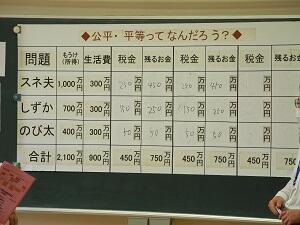 ◆公平・平等って なんだろう？◆
問題 もうけ(所得) 生活費 税金 残るお金 税金 残るお金 税金 残るお金
スネ夫 1,000万円 300万円 万円 450万円 万円 450万円 万円 万円
しずか 700万円 300万円 150万円 250万円 150万円 250万円 万円 万円
のび太 400万円 300万円 50万円 50万円 50万円 50万円 万円 万円
合計 2,100万円 900万円 450万円 750万円 450万円 750万円 450万円 750